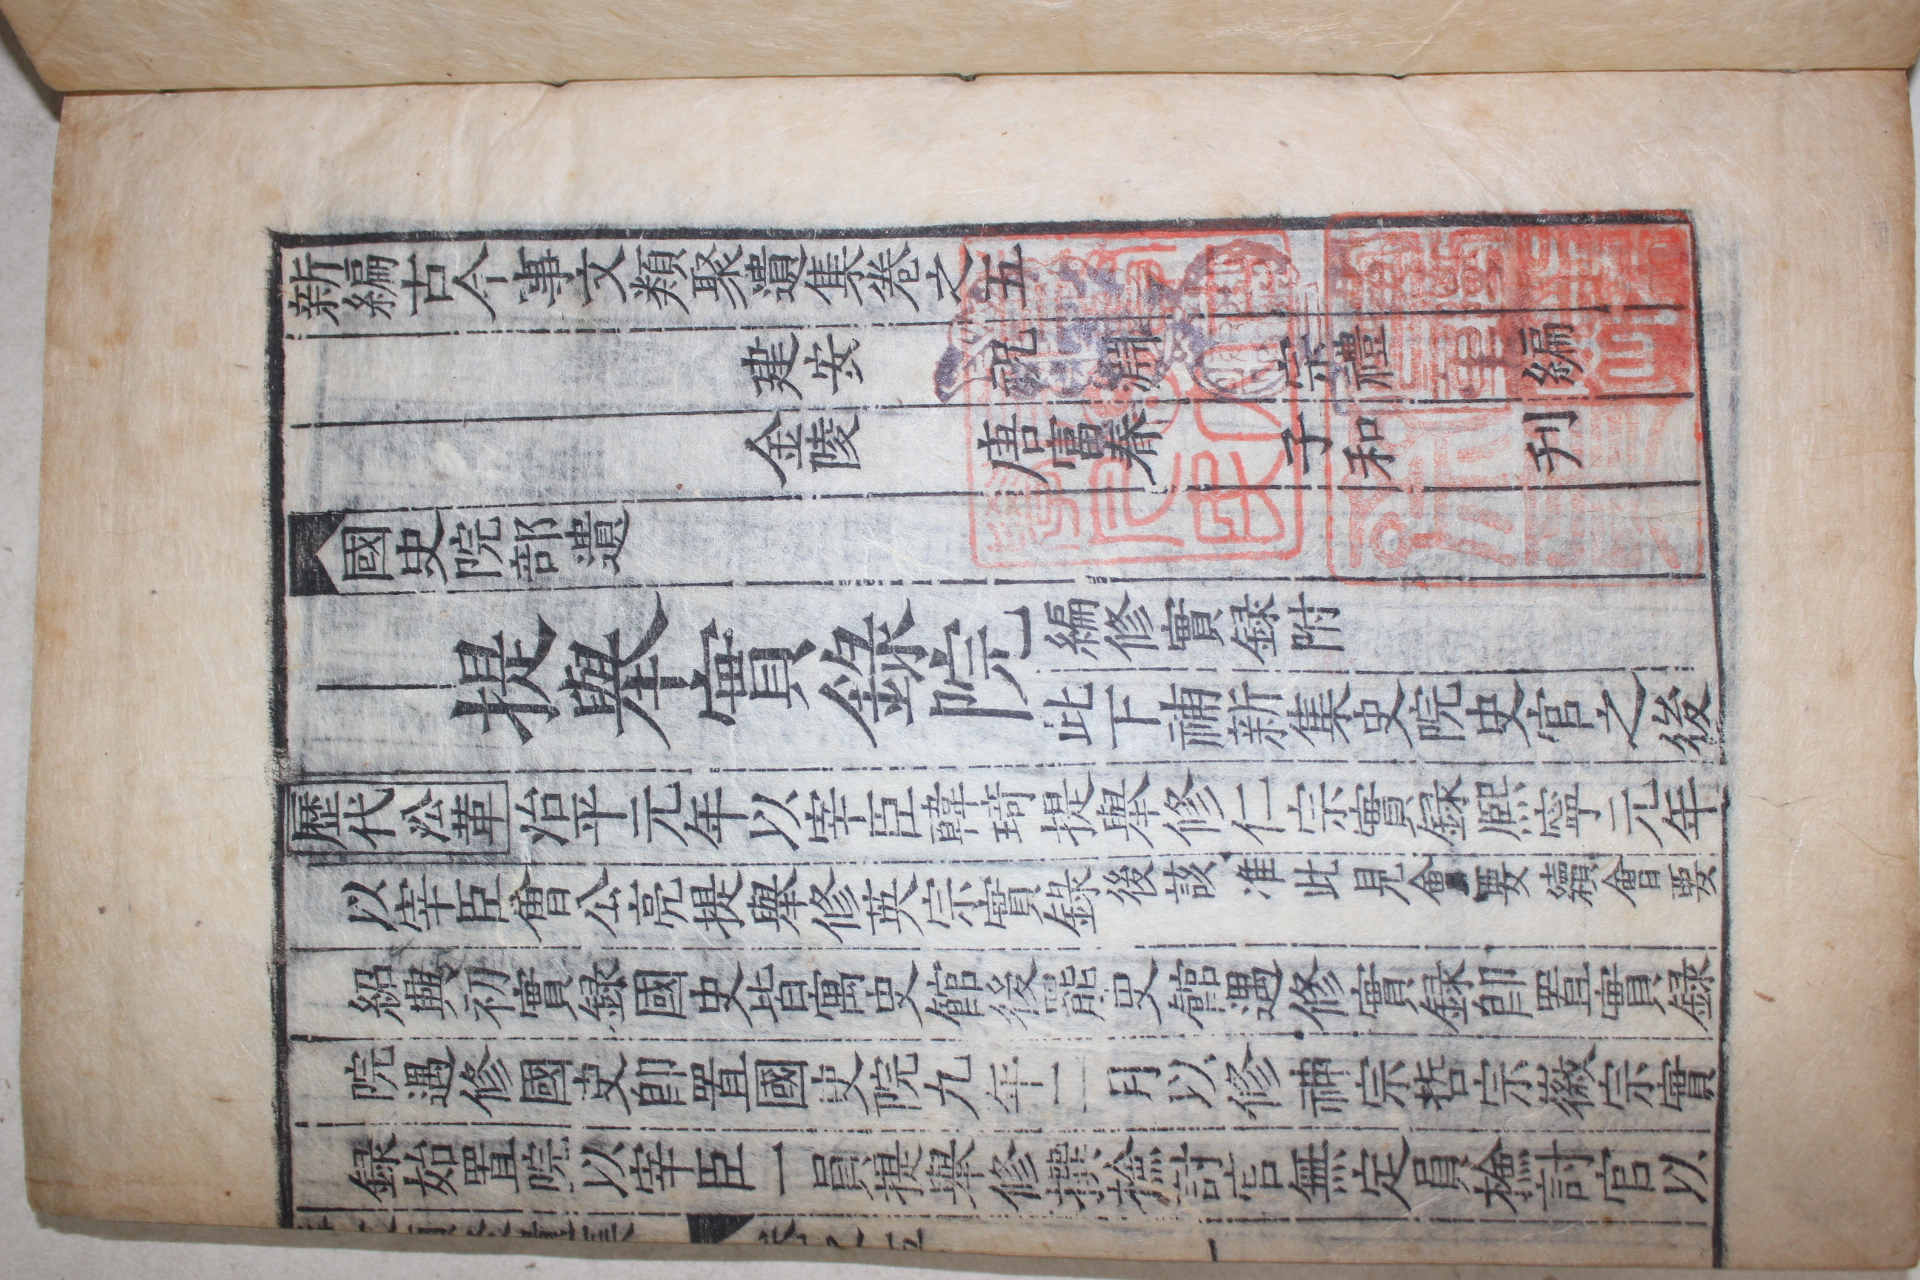 新編古今事文類聚遺集卷之五
建安 祝 淵 宗禮 編
金陵 唐富春 子和 刊
國史院部遺
提舉實錄院 編修實録附
此下補新集史院史官之後
歷代㳂革 治平元年以宰臣韓琦提舉修仁宗實録熈寧元年
以宰臣曾公亮提舉修英宗實錄 後該准此見會要續會要
紹興初實録國史皆寓史館後罷史館遇修實録即置實録
院遇修國史即置國史院九年二月以修神宗哲宗徽宗實
録始置院以宰臣一員提舉修撰撿討官無定員撿討官以
卷之五
一